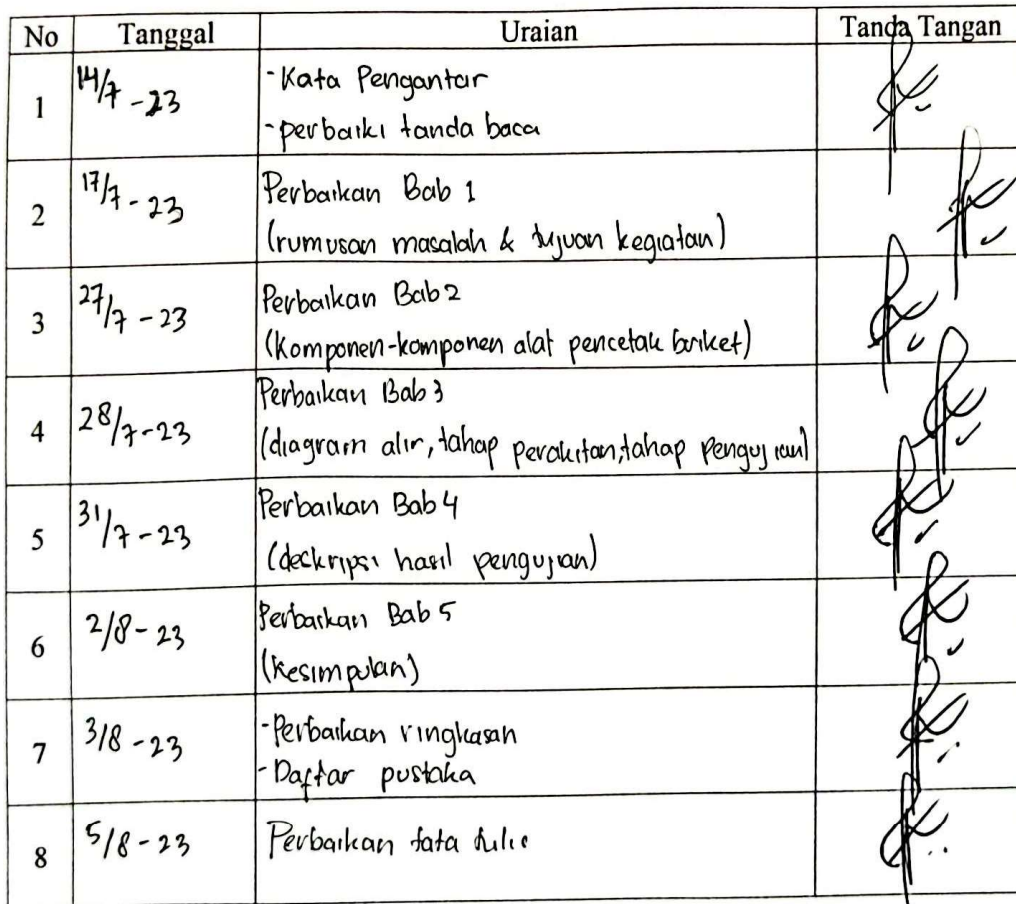 No Tanggal Uraian Tanda Tangan
1 14/7 - 23 - Kata Pengantar
- perbaiki tanda baca
2 17/7 - 23 Perbaikan Bab 1
(rumusan masalah & tujuan kegiatan)
3 27/7 - 23 Perbaikan Bab 2
(Komponen-komponen alat pencetak briket)
4 28/7 - 23 Perbaikan Bab 3
(diagram alir, tahap perakitan, tahap pengujian)
5 31/7 - 23 Perbaikan Bab 4
(deckripsi hasil pengujian)
6 2/8 - 23 Perbaikan Bab 5
(Kesimpulan)
7 3/8 - 23 - Perbaikan ringkasan
- Daftar pustaka
8 5/8 - 23 Perbaikan tata tulis